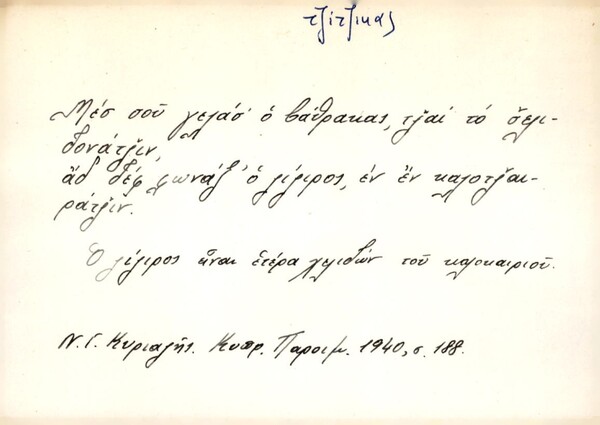 τζίτζικας
Μέσ σοῦ γελᾶσ̌ ὁ βάθρακας, τζ̌αί τό σ̌ελι-
δονάτζ̌ιν,
ἄδ δέφ φωνάξ̌' ὁ ζίζιρος, ἐν ἔν καλοτζ̌αι-
ράτζ̌ιν.
Ὁ ζίζιρος εἶναι ἑτέρα χελιδών τοῦ καλοκαιριοῦ.
Ν. Γ. Κυριαζῆς. Κυπρ. Παροιμ. 1940, σ. 188.